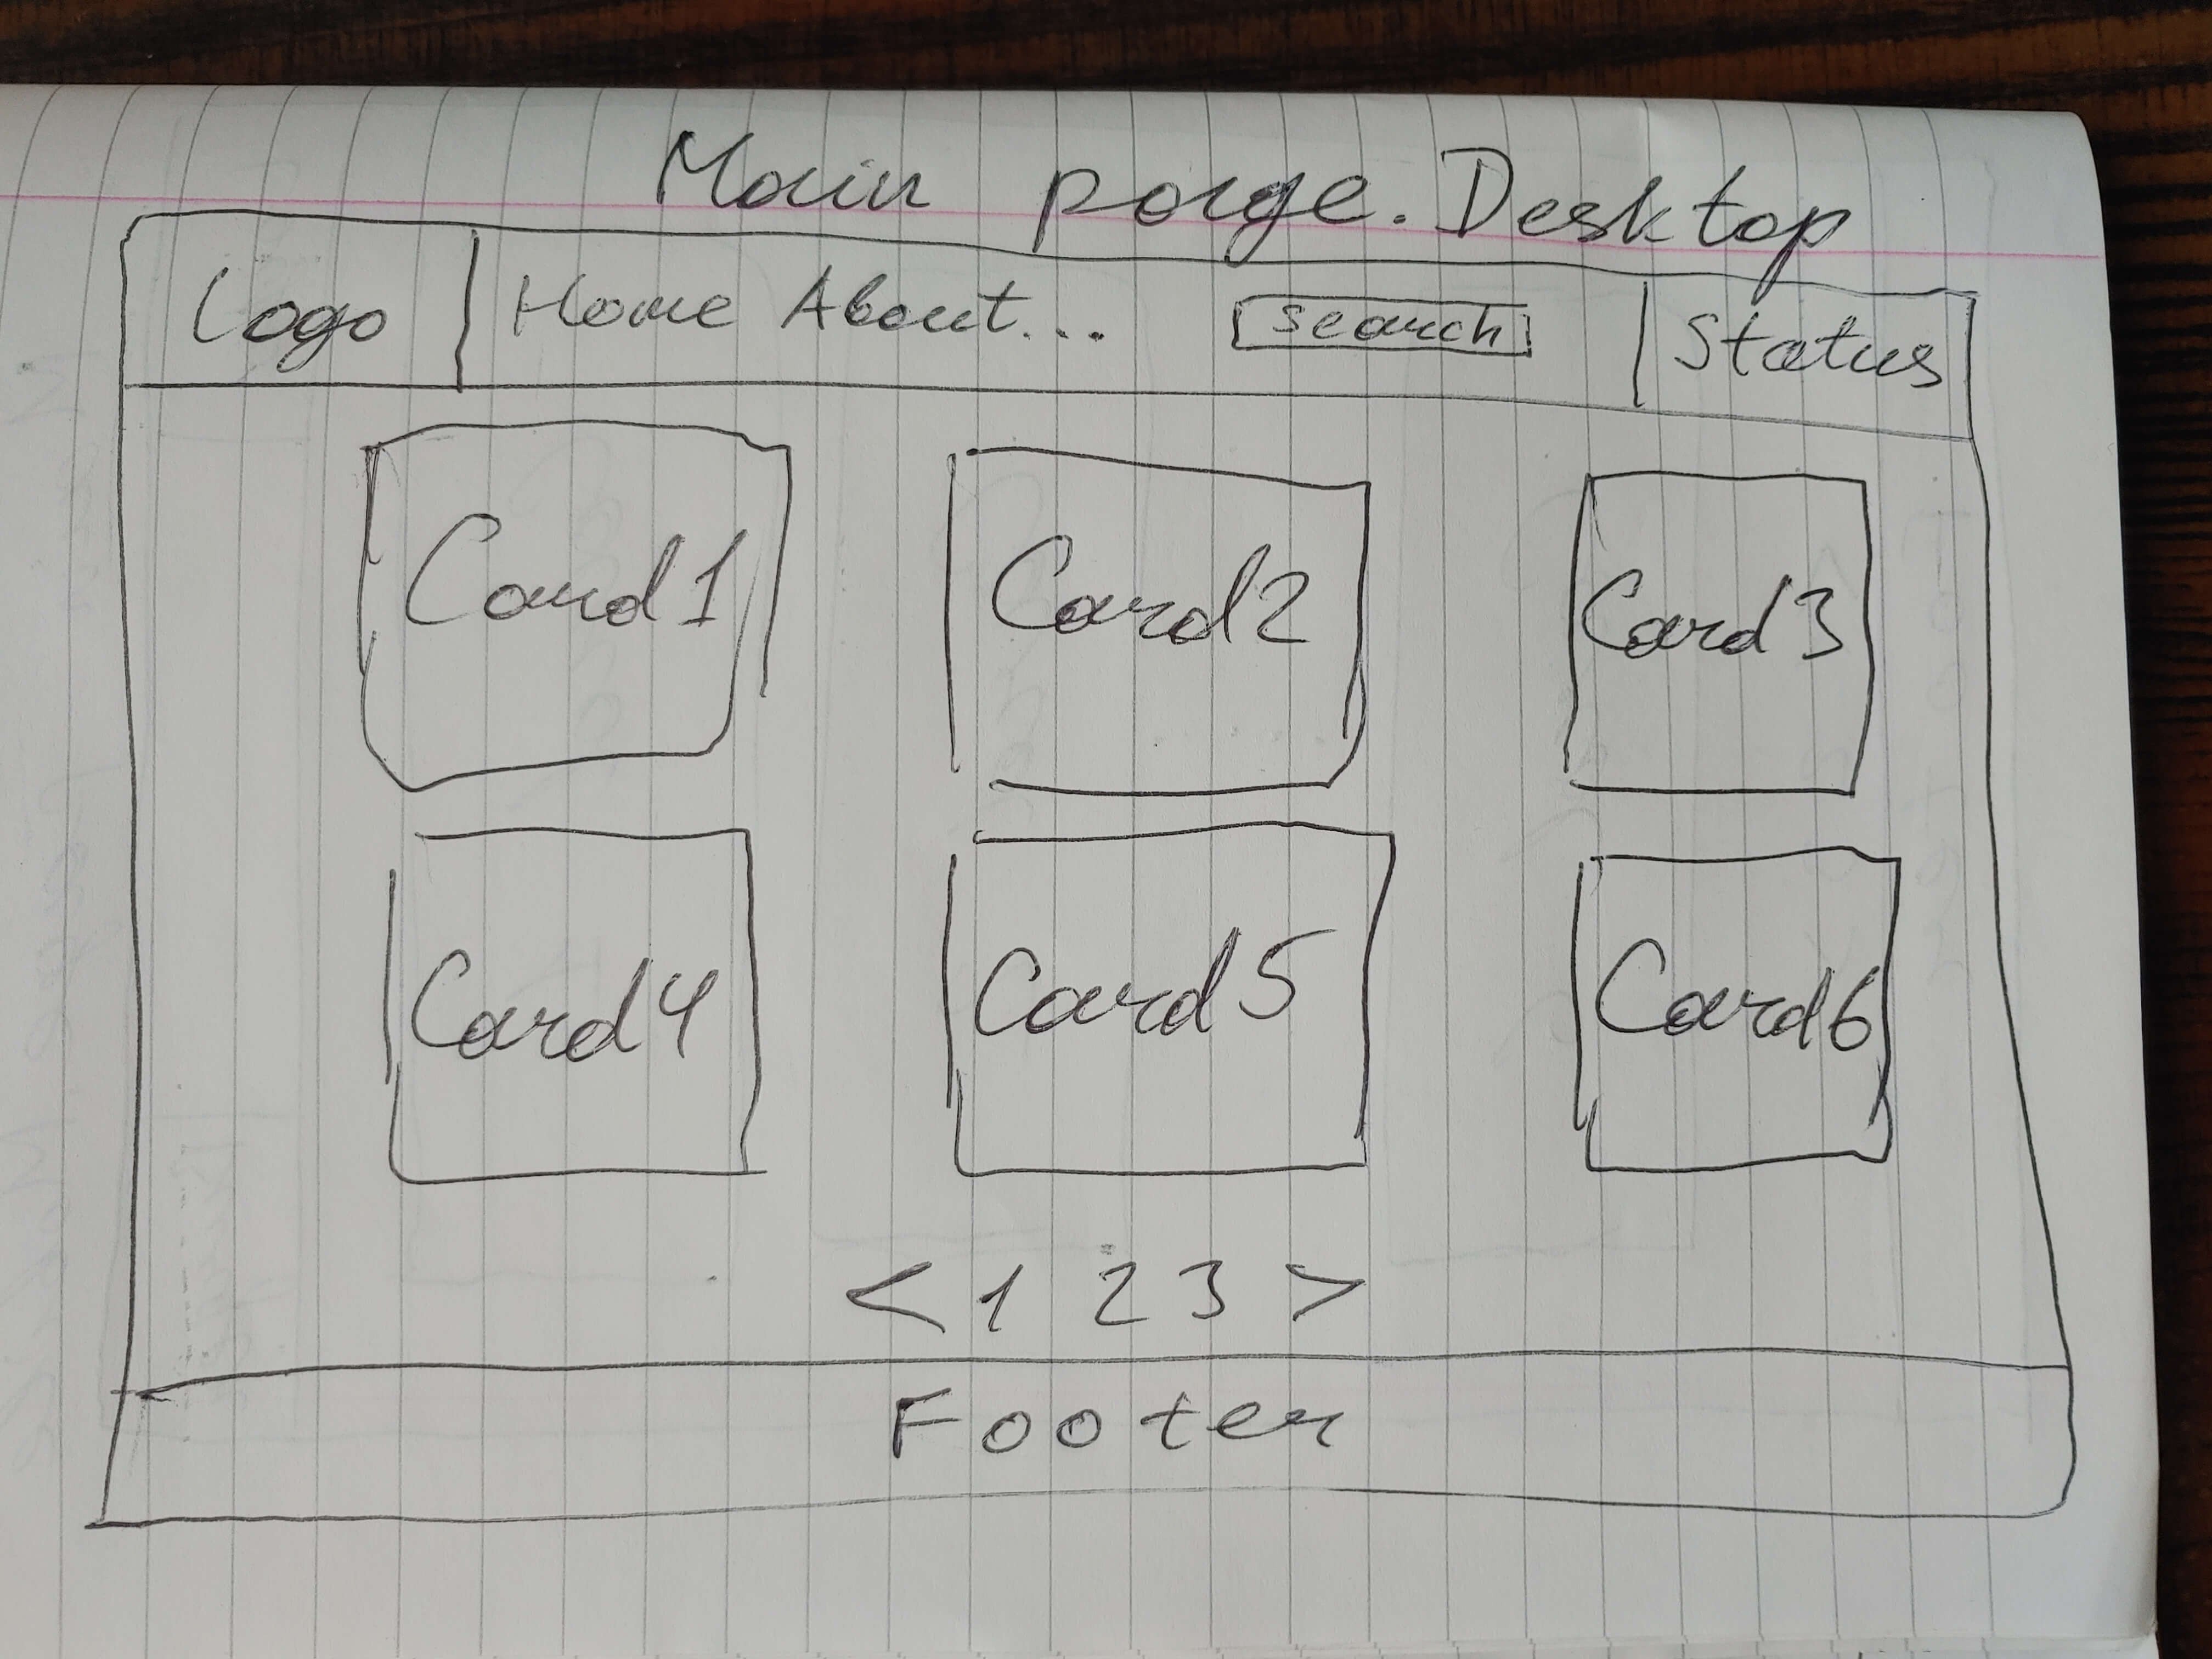 Main page. Desktop
Logo Home About... search Status
Card1 Card2 Card3
Card4 Card5 Card6
< 1 2 3 >
Footer